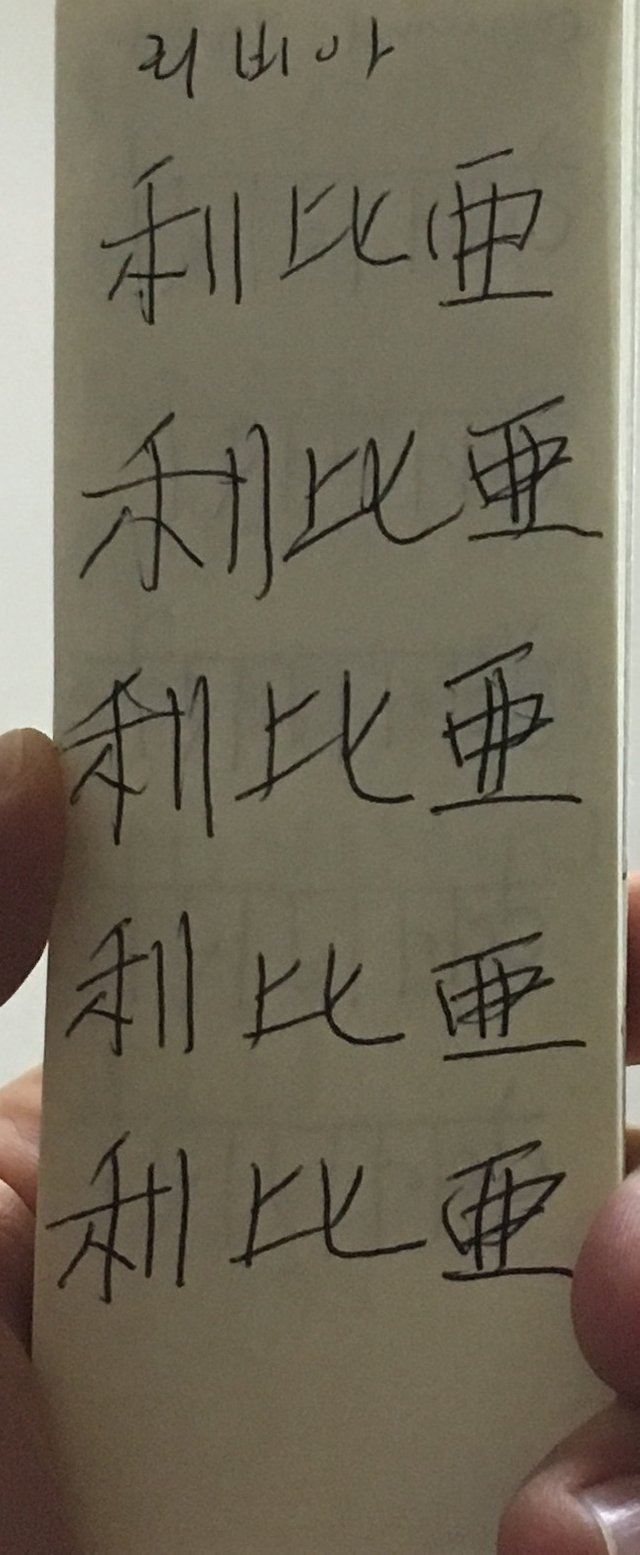 리비아
利比亜
利比亜
利比亜
利比亜
利比亜